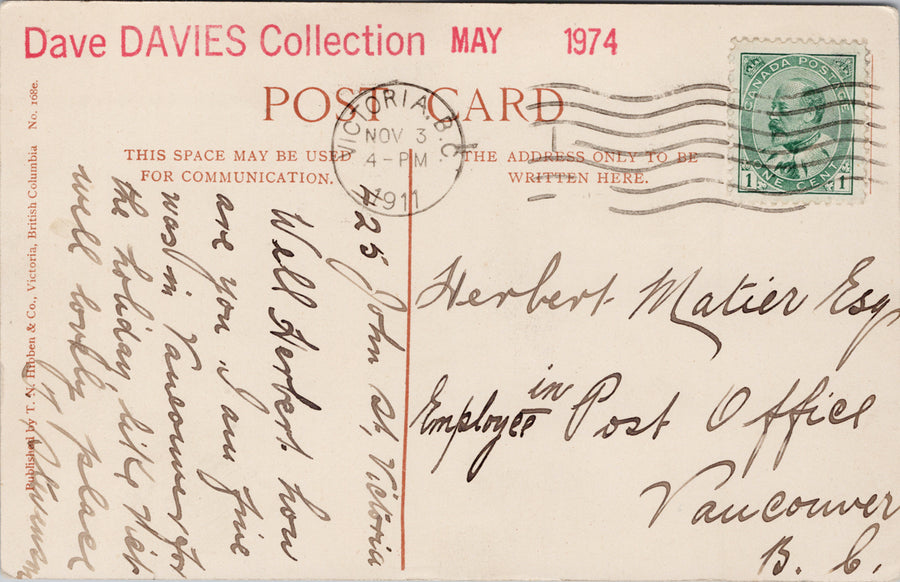 Dave DAVIES Collection MAY 1974
POST CARD
VICTORIA, B.C.
NOV 3
4-PM
1911
CANADA POSTAGE
1 ONE CENT 1
THIS SPACE MAY BE USED
FOR COMMUNICATION.
THE ADDRESS ONLY TO BE
WRITTEN HERE.
425 John St, Victoria
Well Herbert how
are you I am fine
was in Vancouver for
the holiday, like
well lovely place
Herbert Matier Esq
Employee in Post Office
Vancouver
B. C.
Published by T. N. Hibben & Co., Victoria, British Columbia No. 168e.